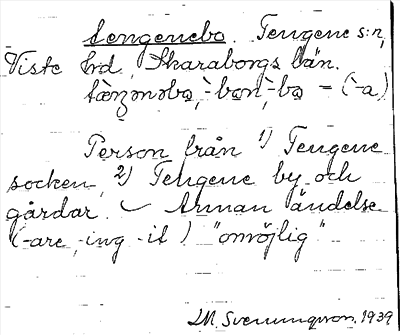 tengenebo. Tengene s:n,
Viste hrd. Skaraborgs län.
-bon, -bo = (-a)
Person från 1) Tengene
socken, 2) Tengene by och
gårdar. — Annan ändelse
(-are, -ing -it) "omöjlig"
LM. Svenungsson. 1939